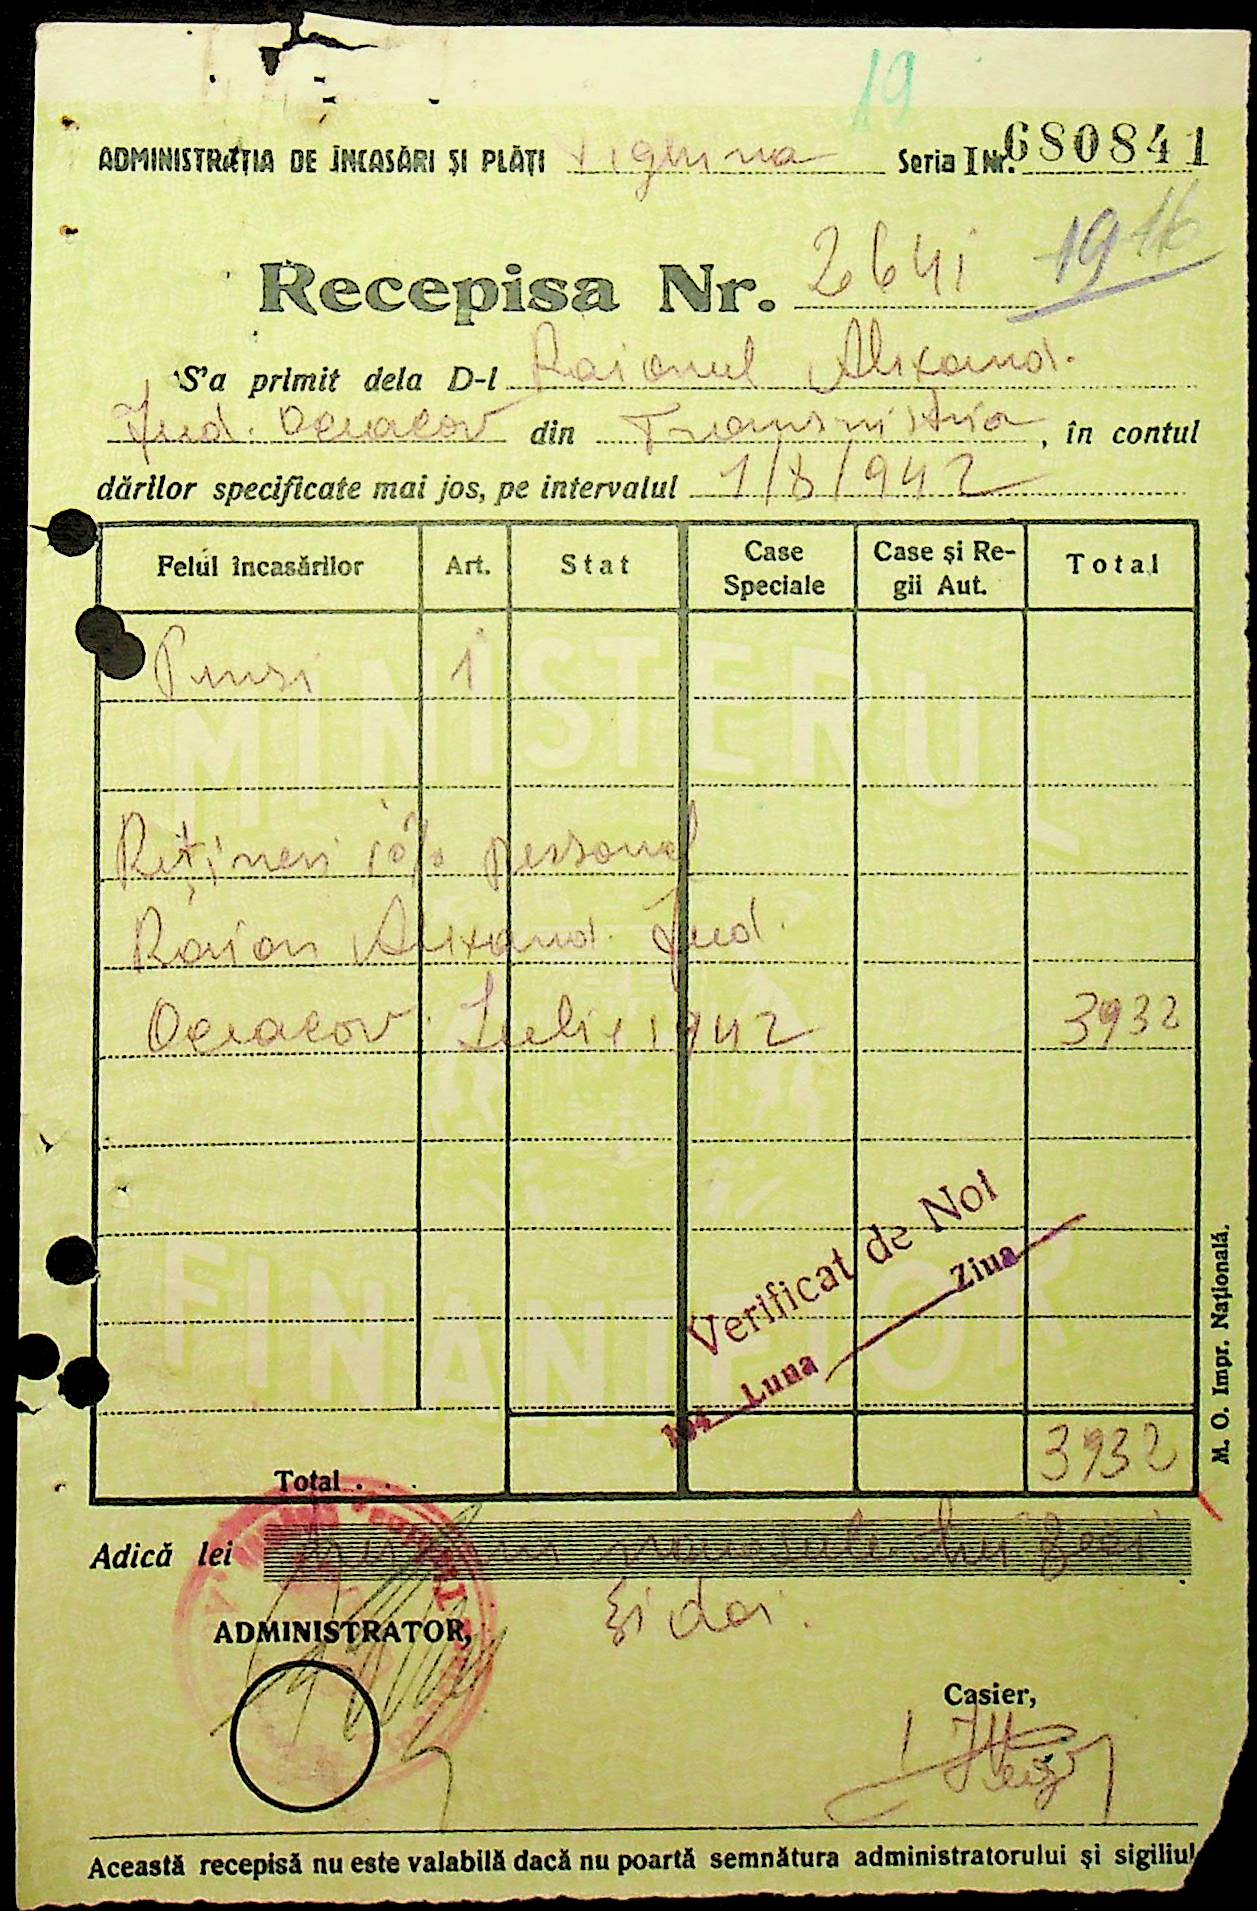 19
ADMINISTRAȚIA DE ÎNCASĂRI ȘI PLĂȚI Tighina Seria I Nr. 680841
Recepisa Nr. 2641 19 16
S'a primit dela D-l Raionul Alexand.
Jud. Oceacov din Transnistria, în contul
dărilor specificate mai jos, pe intervalul 1/8/942
Felul încasărilor Art. Stat Case Speciale Case și Regii Aut. Total
Pensi 1
Rețineri 10% personal
Raion Alexand. Jud.
Oceacov. Iulie 1942 3932
MINISTERUL
FINANȚELOR
Verificat de Noi
194 Luna Ziua
Total . . . 3932
Adică lei nouăsute treizeci
și doi.
ADMINISTRATOR,
Casier,
Această recepisă nu este valabilă dacă nu poartă semnătura administratorului și sigiliul
M. O. Impr. Națională.